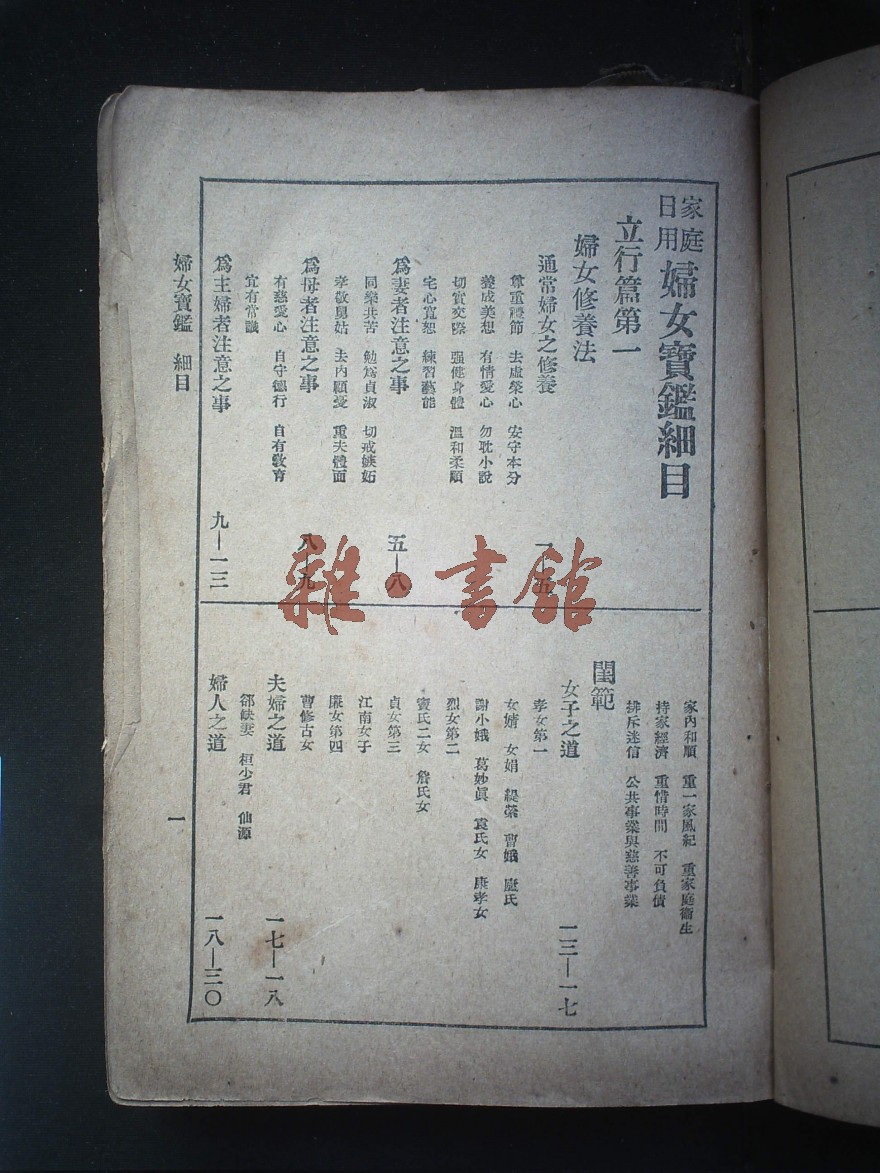 家庭日用 婦女寶鑑細目
立行篇第一
婦女修養法
通常婦女之修養 一—五
尊重禮節 去虛榮心 安守本分
養成美想 有情愛心 勿耽小說
切實交際 强健身體 溫和柔順
宅心寬恕 練習藝能
為妻者注意之事 五—八
同樂共苦 勉為貞淑 切戒嫉妬
孝敬舅姑 去內顧憂 重夫體面
為母者注意之事 八—九
有慈愛心 自守德行 自有敎育
宜有常識
為主婦者注意之事 九—一三
家內和順 重一家風紀 重家庭衞生
持家經濟 重惜時間 不可負債
排斥迷信 公共事業與慈善事業
閨範
女子之道 一三—一七
孝女第一
女婧 女娟 緹縈 曹娥 盧氏
謝小娥 葛妙眞 袁氏女 康孝女
烈女第二
竇氏二女 詹氏女
貞女第三
江南女子
廉女第四
曹修古女
夫婦之道 一七—一八
郤缺妻 桓少君 仙源
婦人之道 一八—三〇
婦女寶鑑 細目
一
雜·書館